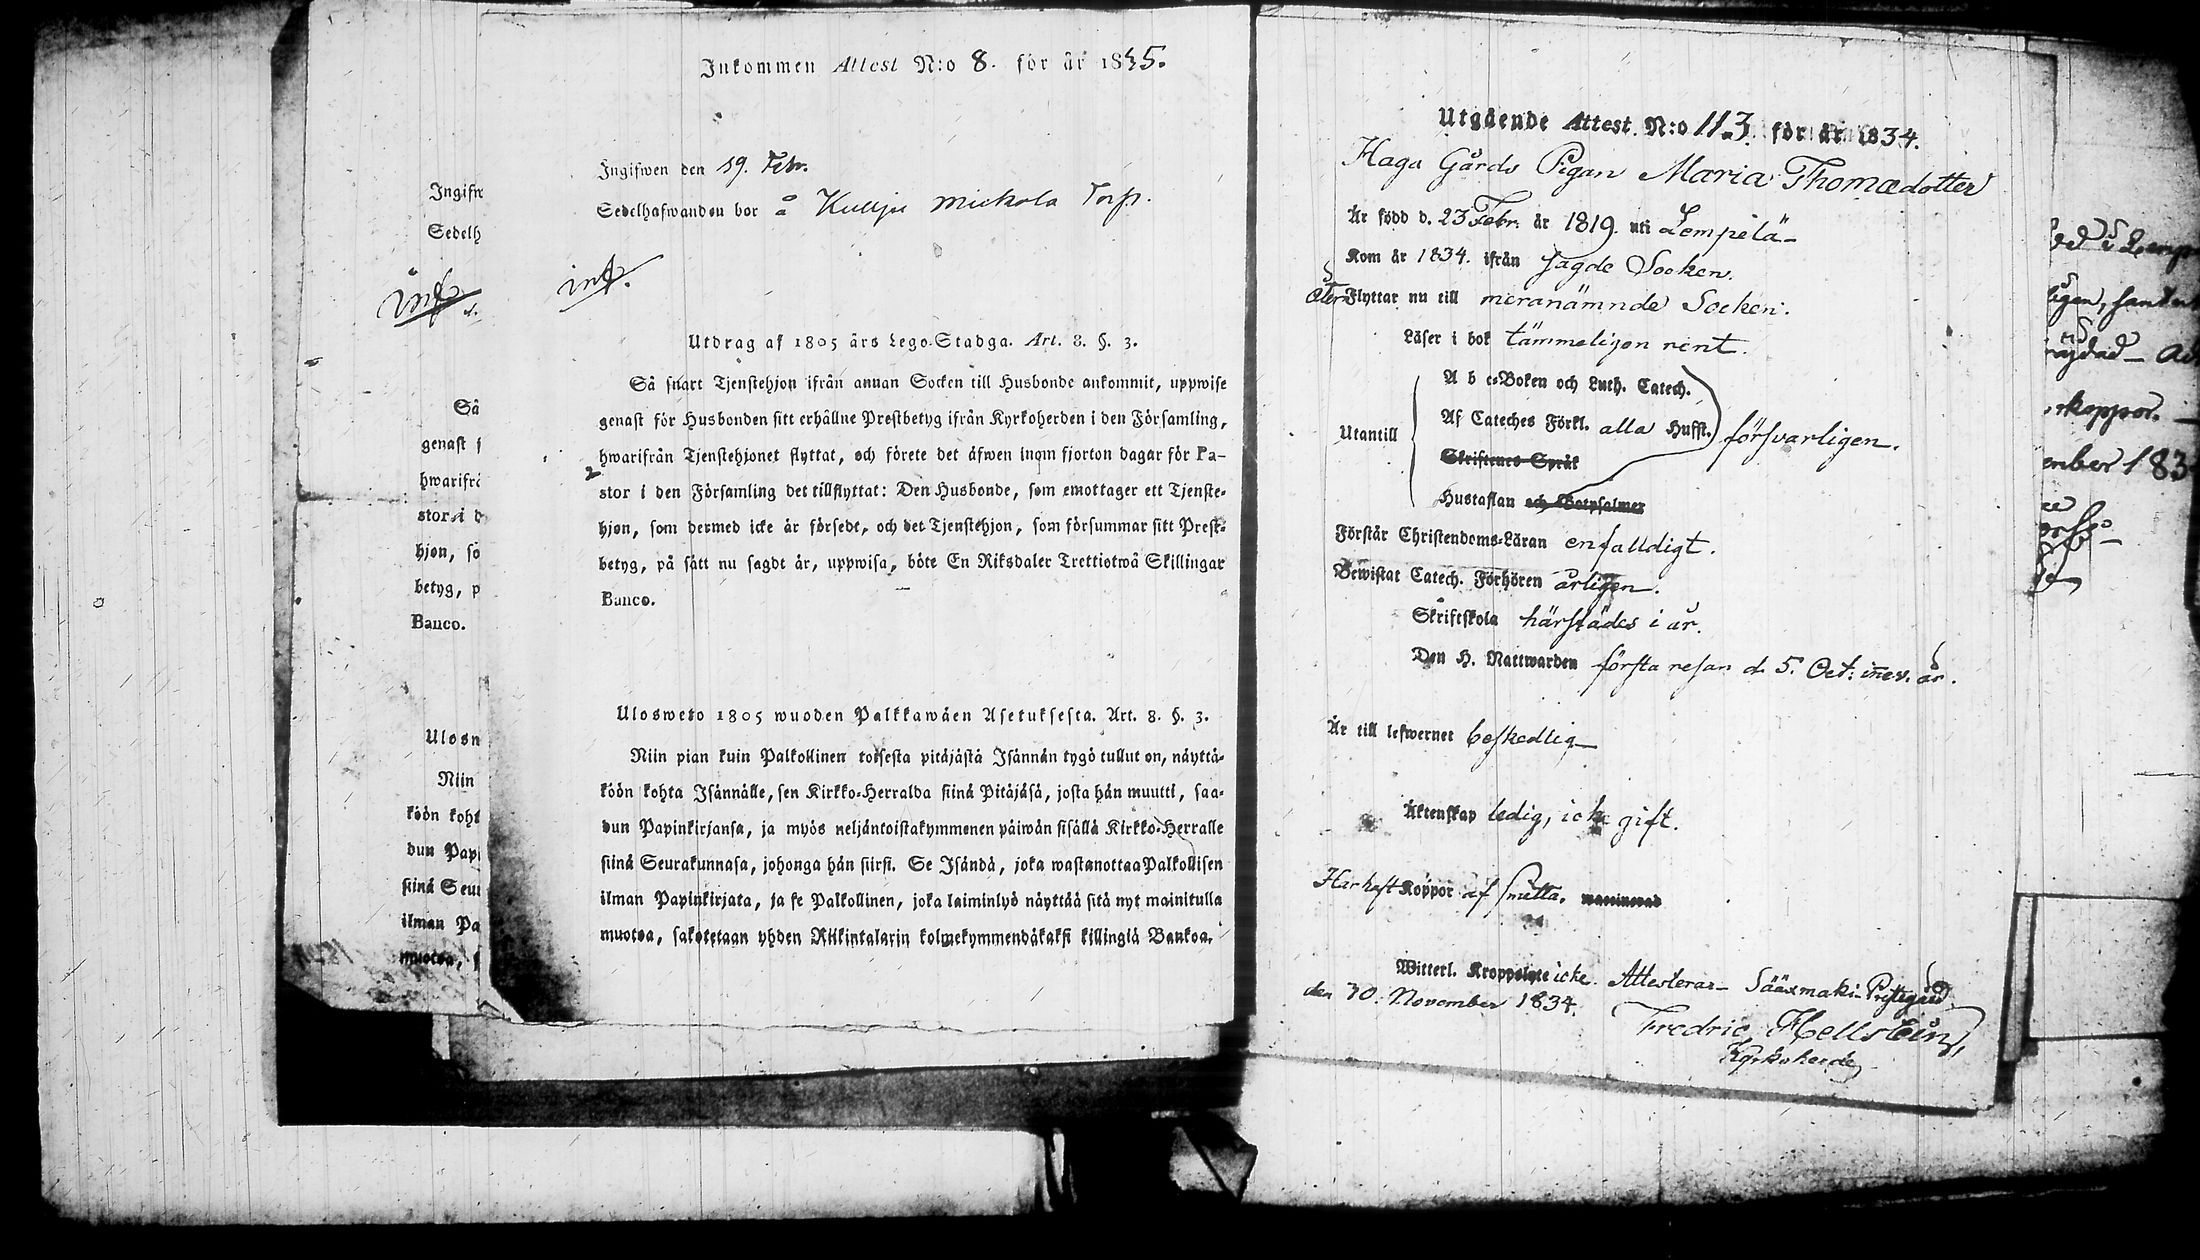 Inkommen Attest N:o 8. för år 1835.
Ingifwen den 19. Febr.
Sedelhafwanden bor å Kulju Mickola Torp.
inf.
Utdrag af 1805 års Lego-Stadga. Art. 8. §. 3.
Så snart Tjenstehjon ifrån annan Socken till Husbonde ankommit, uppwise
genast för Husbonden sitt erhållne Prestbetyg ifrån Kyrkoherden i den Församling,
hwarifrån Tjenstehjonet flyttat, och förete det äfwen inom fjorton dagar för Pa-
stor i den Församling det tillflyttat: Den Husbonde, som emottager ett Tjenste-
hjon, som dermed icke är försedt, och det Tjenstehjon, som försummar sitt Prest-
betyg, på sätt nu sagdt är, uppwisa, böte En Riksdaler Trettiotwå Skillingar
Banco.
Ulosweto 1805 wuoden Palkkawäen Asetuksesta. Art. 8. §. 3.
Niin pian kuin Palkollinen toisesta pitäjästä Isännän tygö tullut on, näyttä-
köön kohta Isännälle, sen Kirkko-Herralda siinä Pitäjäsä, josta hän muutti, saa-
dun Papinkirjansa, ja myös neljäntoistakymmenen päiwän sisällä Kirkko-Herralle
siinä Seurakunnasa, johonga hän siirsi. Se Isändä, joka wastanottaa Palkollisen
ilman Papinkirjata, ja se Palkollinen, joka laiminlyö näyttää sitä nyt mainitulla
muotoa, sakotetaan yhden Riikintalarin kolmekymmendäkaksi killingiä Bankoa.
Ingifw
Sedelh
inf.
Så
genast f
hwarifrå
stor i d
hjon, so
betyg, p
Banco.
Ulosw
Niin
köön koht
dun Papi
siinä Seur
ilman Pa
muotoa, s
Utgående Attest N:o 113. för år 1834.
Haga Gårds Pigan Maria Thomædotter
Är född d. 23 Febr. år 1819. uti Lempelä
Kom år 1834. ifrån sagde Socken.
åter Flyttar nu till meranämnde Socken.
Läser i bok tämmeligen rent.
A b c-Boken och Luth. Catech.
Utantill Af Cateches Förkl. alla Hufst. försvarligen.
Skriftenes Språk
Hustaflan och Botpsalmer
Förstår Christendoms-Läran enfalldigt.
Bewistat Catech. Förhören årligen.
Skriftskola härstädes i år.
Den H. Nattwarden första resan d. 5. Oct: innev. år.
Är till lefwernet beskedlig
Äktenskap ledig, icke gift.
Har haft Koppor af smitta. waccinerad
Witterl. Kroppslyte icke. Attesterar Sääxmäki Prestegård
den 30. November 1834.
Fredric Hellsteün,
Kyrkoherde
ember 183